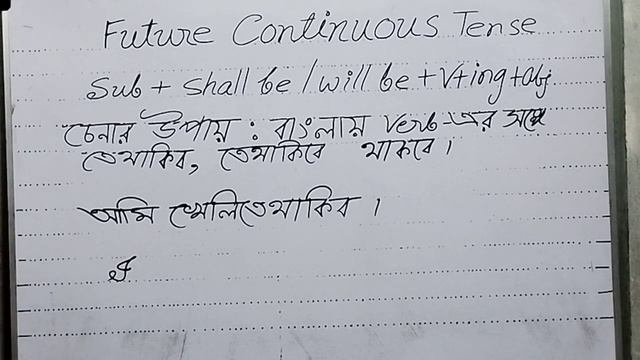 Future Continuous Tense
Sub + shall be / will be + V+ing+obj
চেনার উপায় : বাংলায় Verb-এর সঙ্গে
তেথাকিব, তেথাকিবে থাকবে।
আমি খেলিতেথাকিব।
I